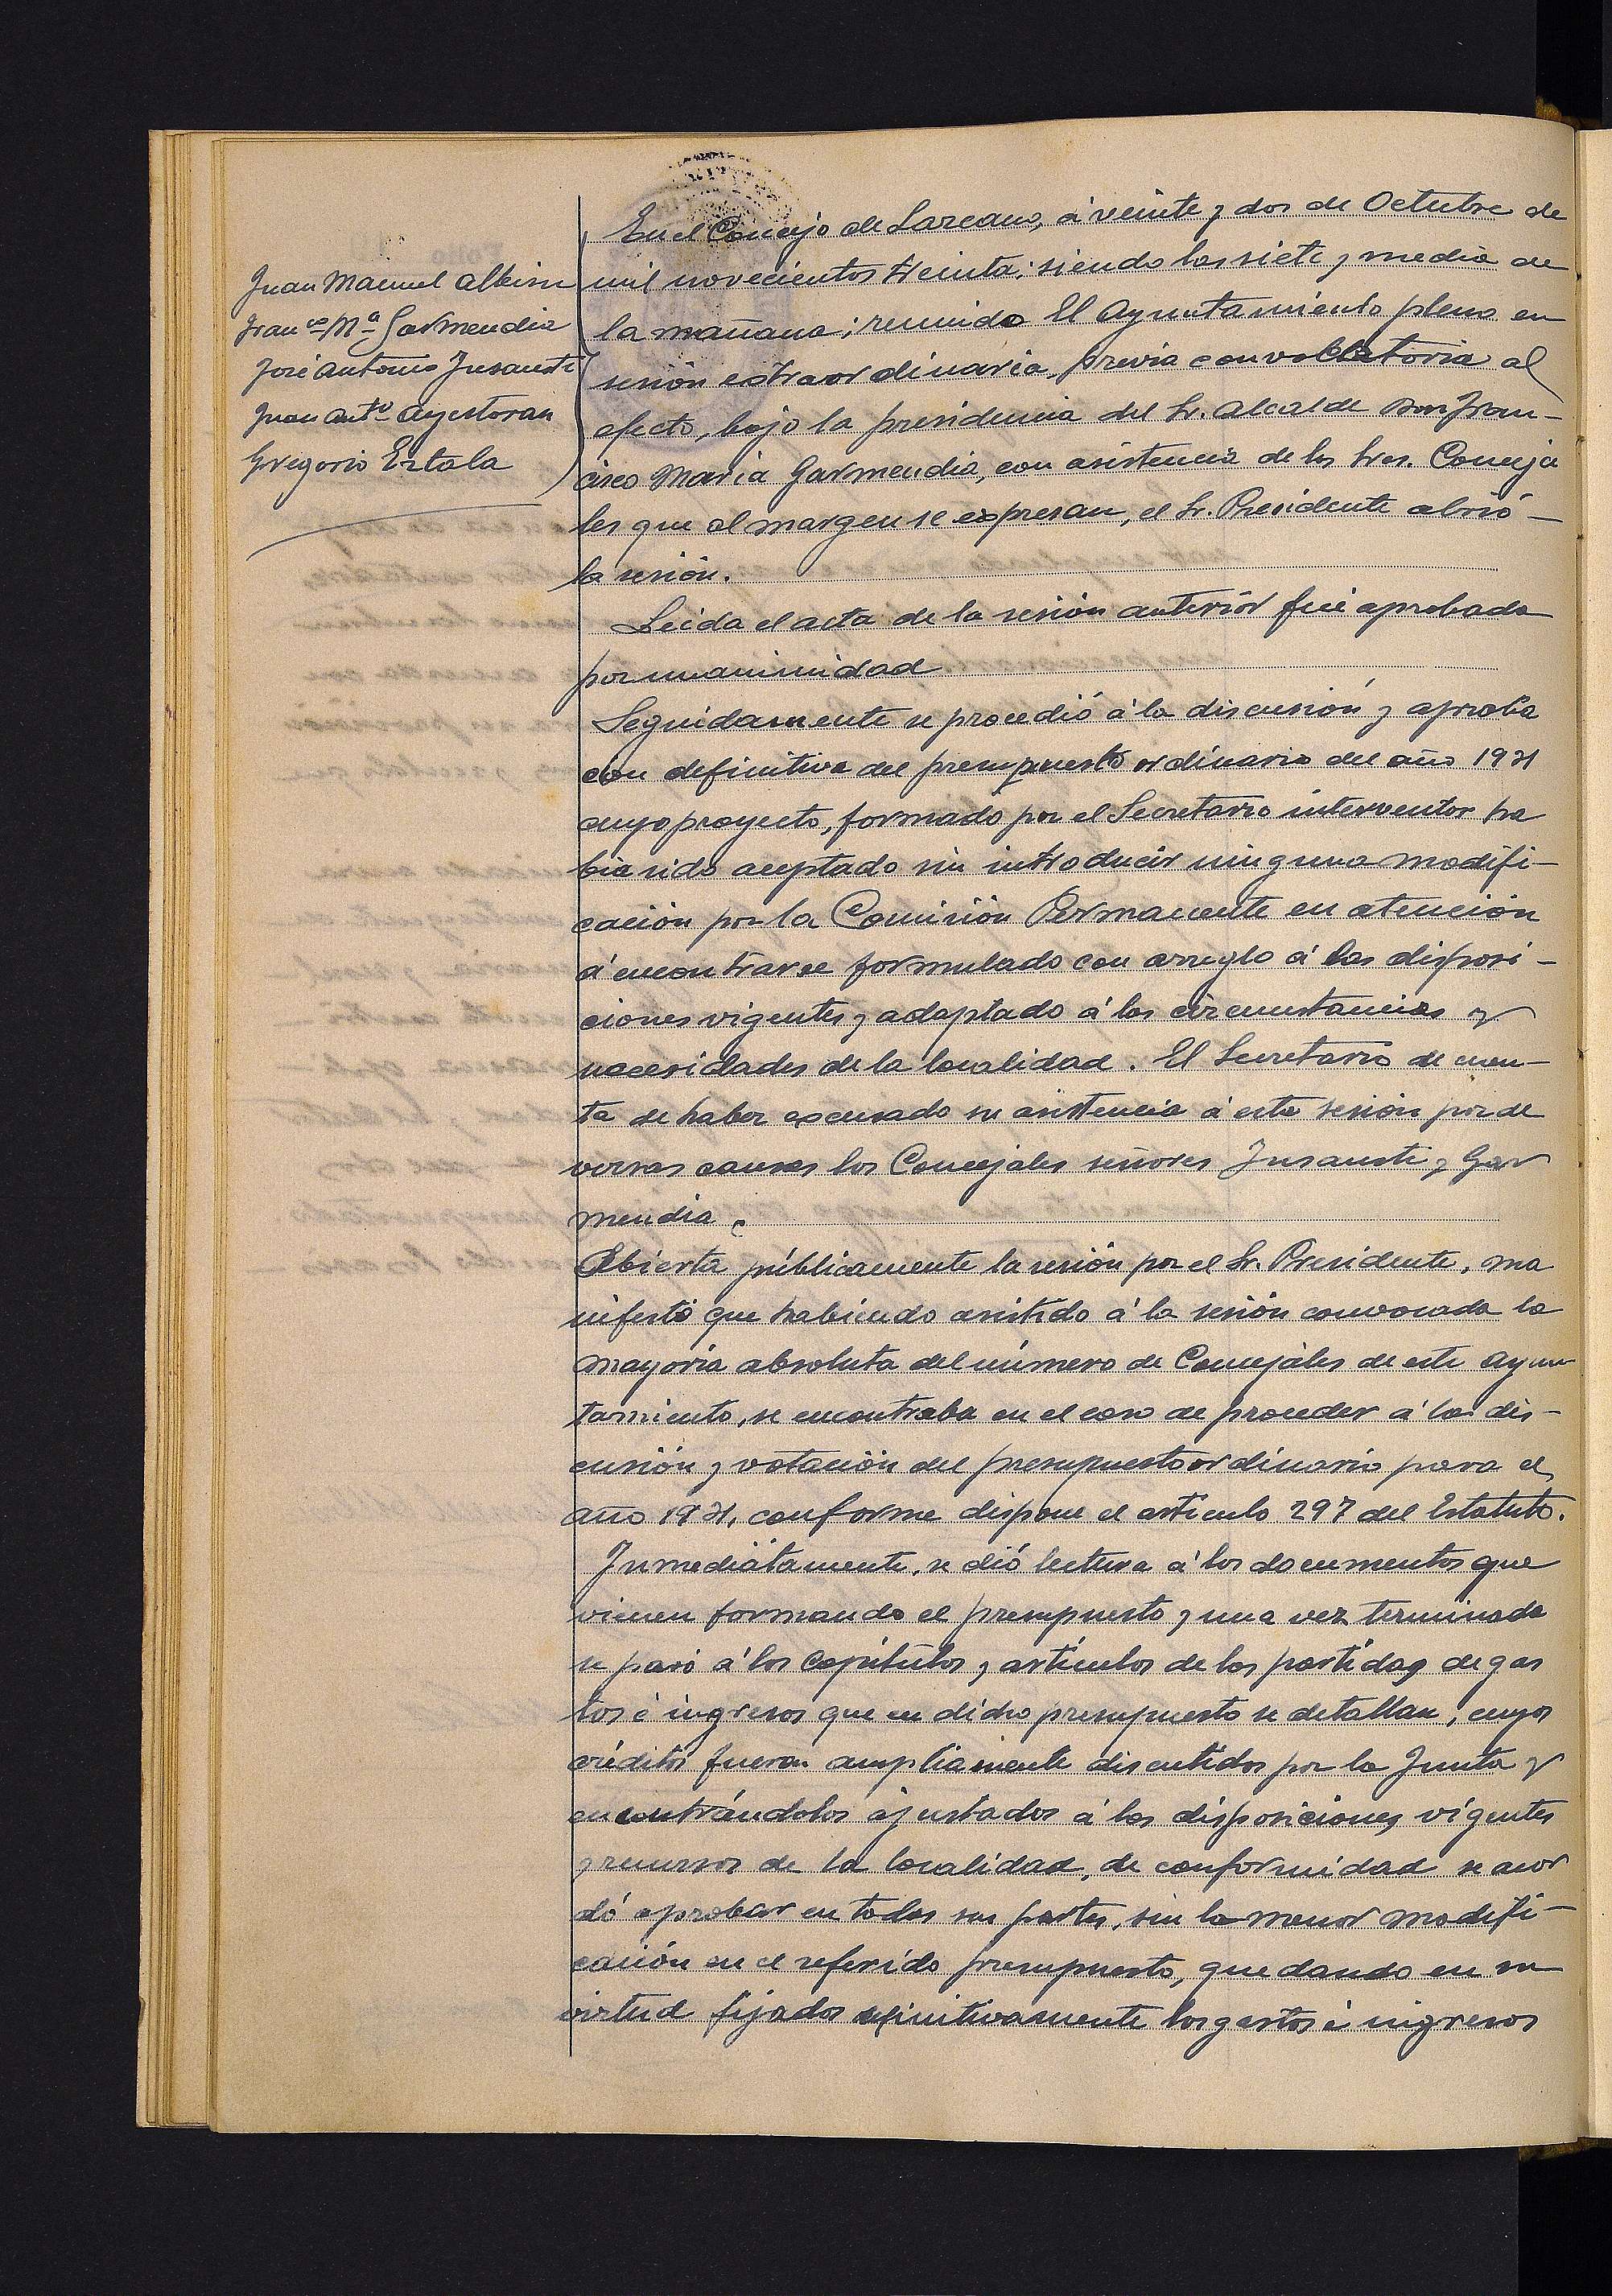 Juan Manuel Albisu
Franco Mª Garmendia
José Antonio Insausti
Juan Antº Ayestaran
Gregorio Eztala
En el Concejo de Lazcano, á veinte y dos de Octubre de
mil novecientos treinta; siendo las siete y media de
la mañana; reunido El Ayuntamiento pleno en
sesión extraordinaria, previa convocatoria al
efecto, bajo la presidencia del Sr. Alcalde Don Fran-
cisco Maria Garmendia, con asistencia de los Sres. Conceja
les que al margen se expresan, el Sr. Presidente abrió -
la sesión.
Leida el acta de la sesión anterior fué aprobada
por unanimidad
Seguidamente se procedió á la discusión y aproba
cion definitiva del presupuesto ordinario del año 1931
cuyo proyecto, formado por el Secretario interventor ha
bia sido aceptado sin introducir ninguna modifi-
cación por la Comisión Permanente en atención
á encontrarse formulado con arreglo á las disposi-
ciones vigentes y adaptado á las circunstancias y
necesidades de la localidad. El Secretario de cuen-
ta de haber excusado su asistencia á esta sesión por de
versas causas los Concejales señores Insausti y Gar
mendia.
Abierta públicamente la sesión por el Sr. Presidente, ma
nifestó que habiendo asistido á la sesión convocada la
mayoría absoluta del número de Concejales de este Ayun
tamiento, se encontraba en el caso de proceder á la dis-
cusión y votación del presupuesto ordinario para el
año 1931, conforme dispone el artículo 297 del Estatuto.
Inmediatamente, se dió lectura á los documentos que
vienen formando el presupuesto y una vez terminada
se pasó á los capítulos y artículos de las partidas de gas
tos é ingresos que en dicho presupuesto se detallan, cuyos
créditos fueron ampliamente discutidos por la Junta y
encontrándolos ajustados á las disposiciones vigentes
y recursos de la localidad, de conformidad se acor
dó aprobar en todas sus partes, sin la menor modifi-
cación en el referido presupuesto, quedando en su
virtud fijados definitivamente los gastos é ingresos